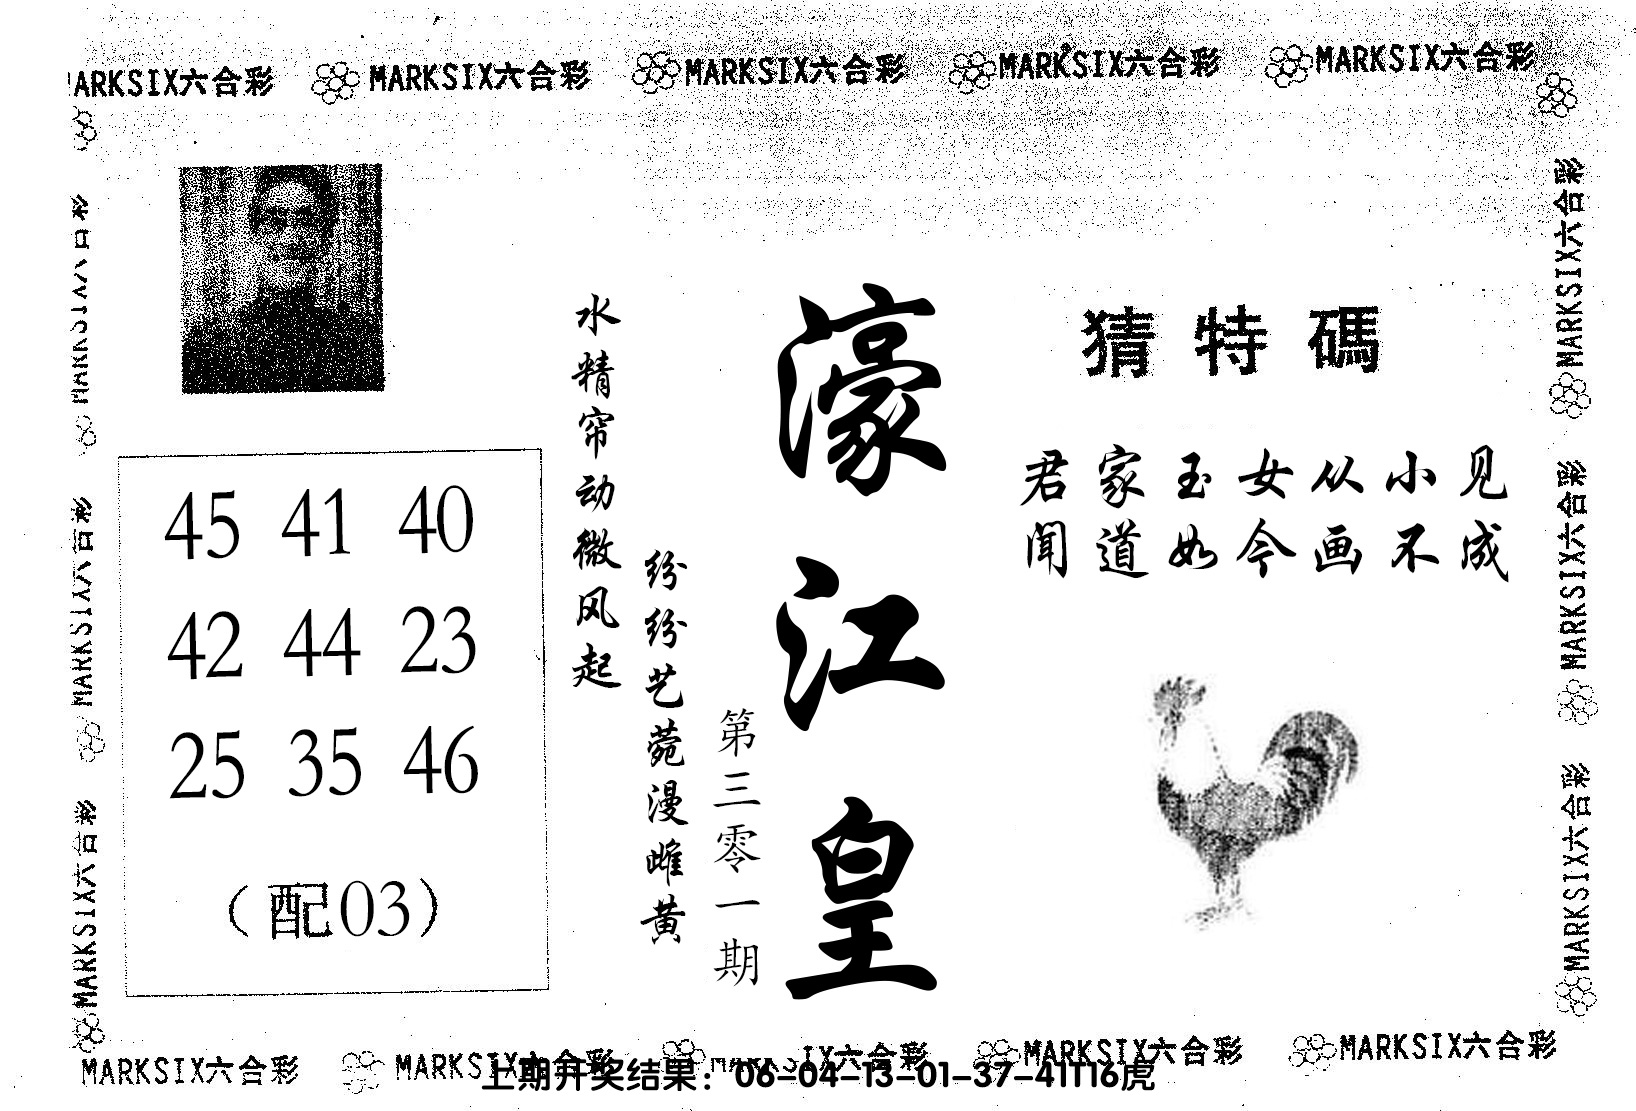 MARKSIX六合彩 MARKSIX六合彩 MARKSIX六合彩 MARKSIX六合彩 MARKSIX六合彩
猜特碼
君家玉女从小见
闻道如今画不成
濠江皇
第三零一期
水精帘动微风起
纷纷艺菀漫雌黄
45 41 40
42 44 23
25 35 46
（配03）
MARKSIX六合彩
MARKSIX六合彩
MARKSIX六合彩
MARKSIX六合彩
MARKSIX六合彩
MARKSIX六合彩
MARKSIX六合彩 MARKSIX六合彩 MARKSIX六合彩 MARKSIX六合彩 MARKSIX六合彩
上期开奖结果：06-04-13-01-37-41T16虎